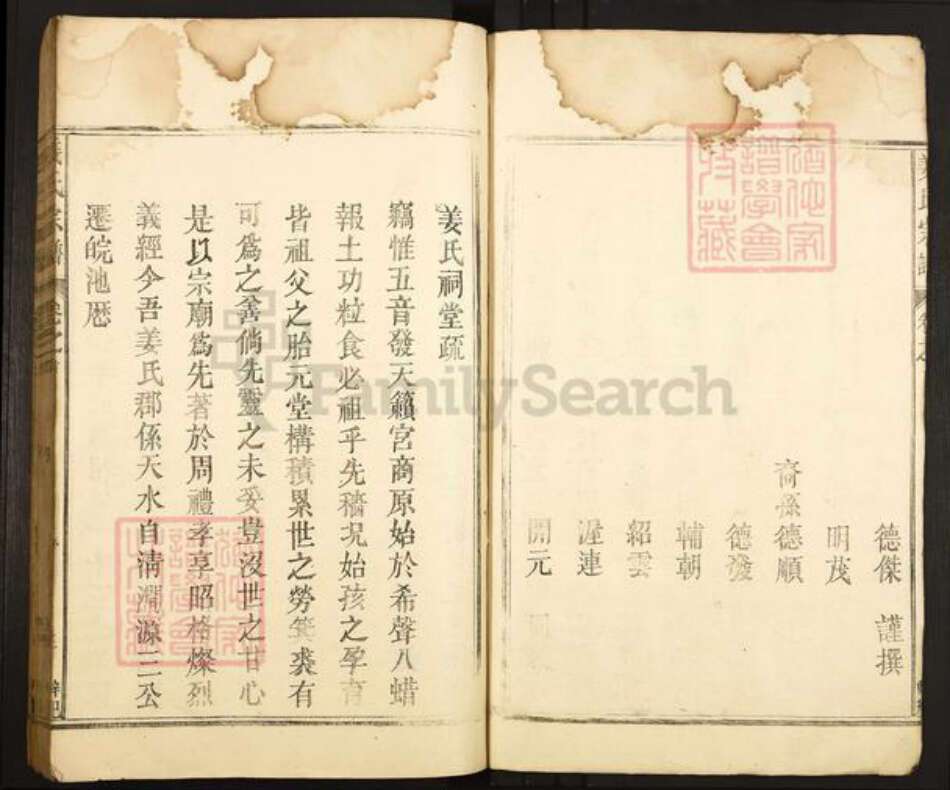 德傑 謹撰
明茂
裔孫德順
德發
輔朝
紹雲
渥連
開元
姜氏祠堂疏
竊惟五音發天籟宮商原始於希聲八蜡
報土功粒食必祖乎先穡况始孩之孕育
皆祖父之胎元堂構積累世之勞箕裘有
可爲之善倘先靈之未妥豈沒世之甘心
是以宗廟爲先著於周禮孝享昭格燦烈
義經今吾姜氏郡係天水自淸澗源三公
遷皖池厯
姜氏宗譜
FamilySearch